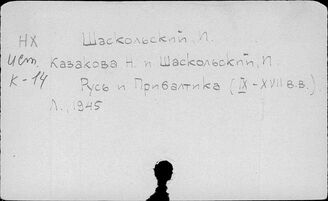 НХ Шаскольский, И.
Ист. Казакова Н. и Шаскольский, И.
К-14 Русь и Прибалтика (IX-XVII в.в.)
Л., 1945